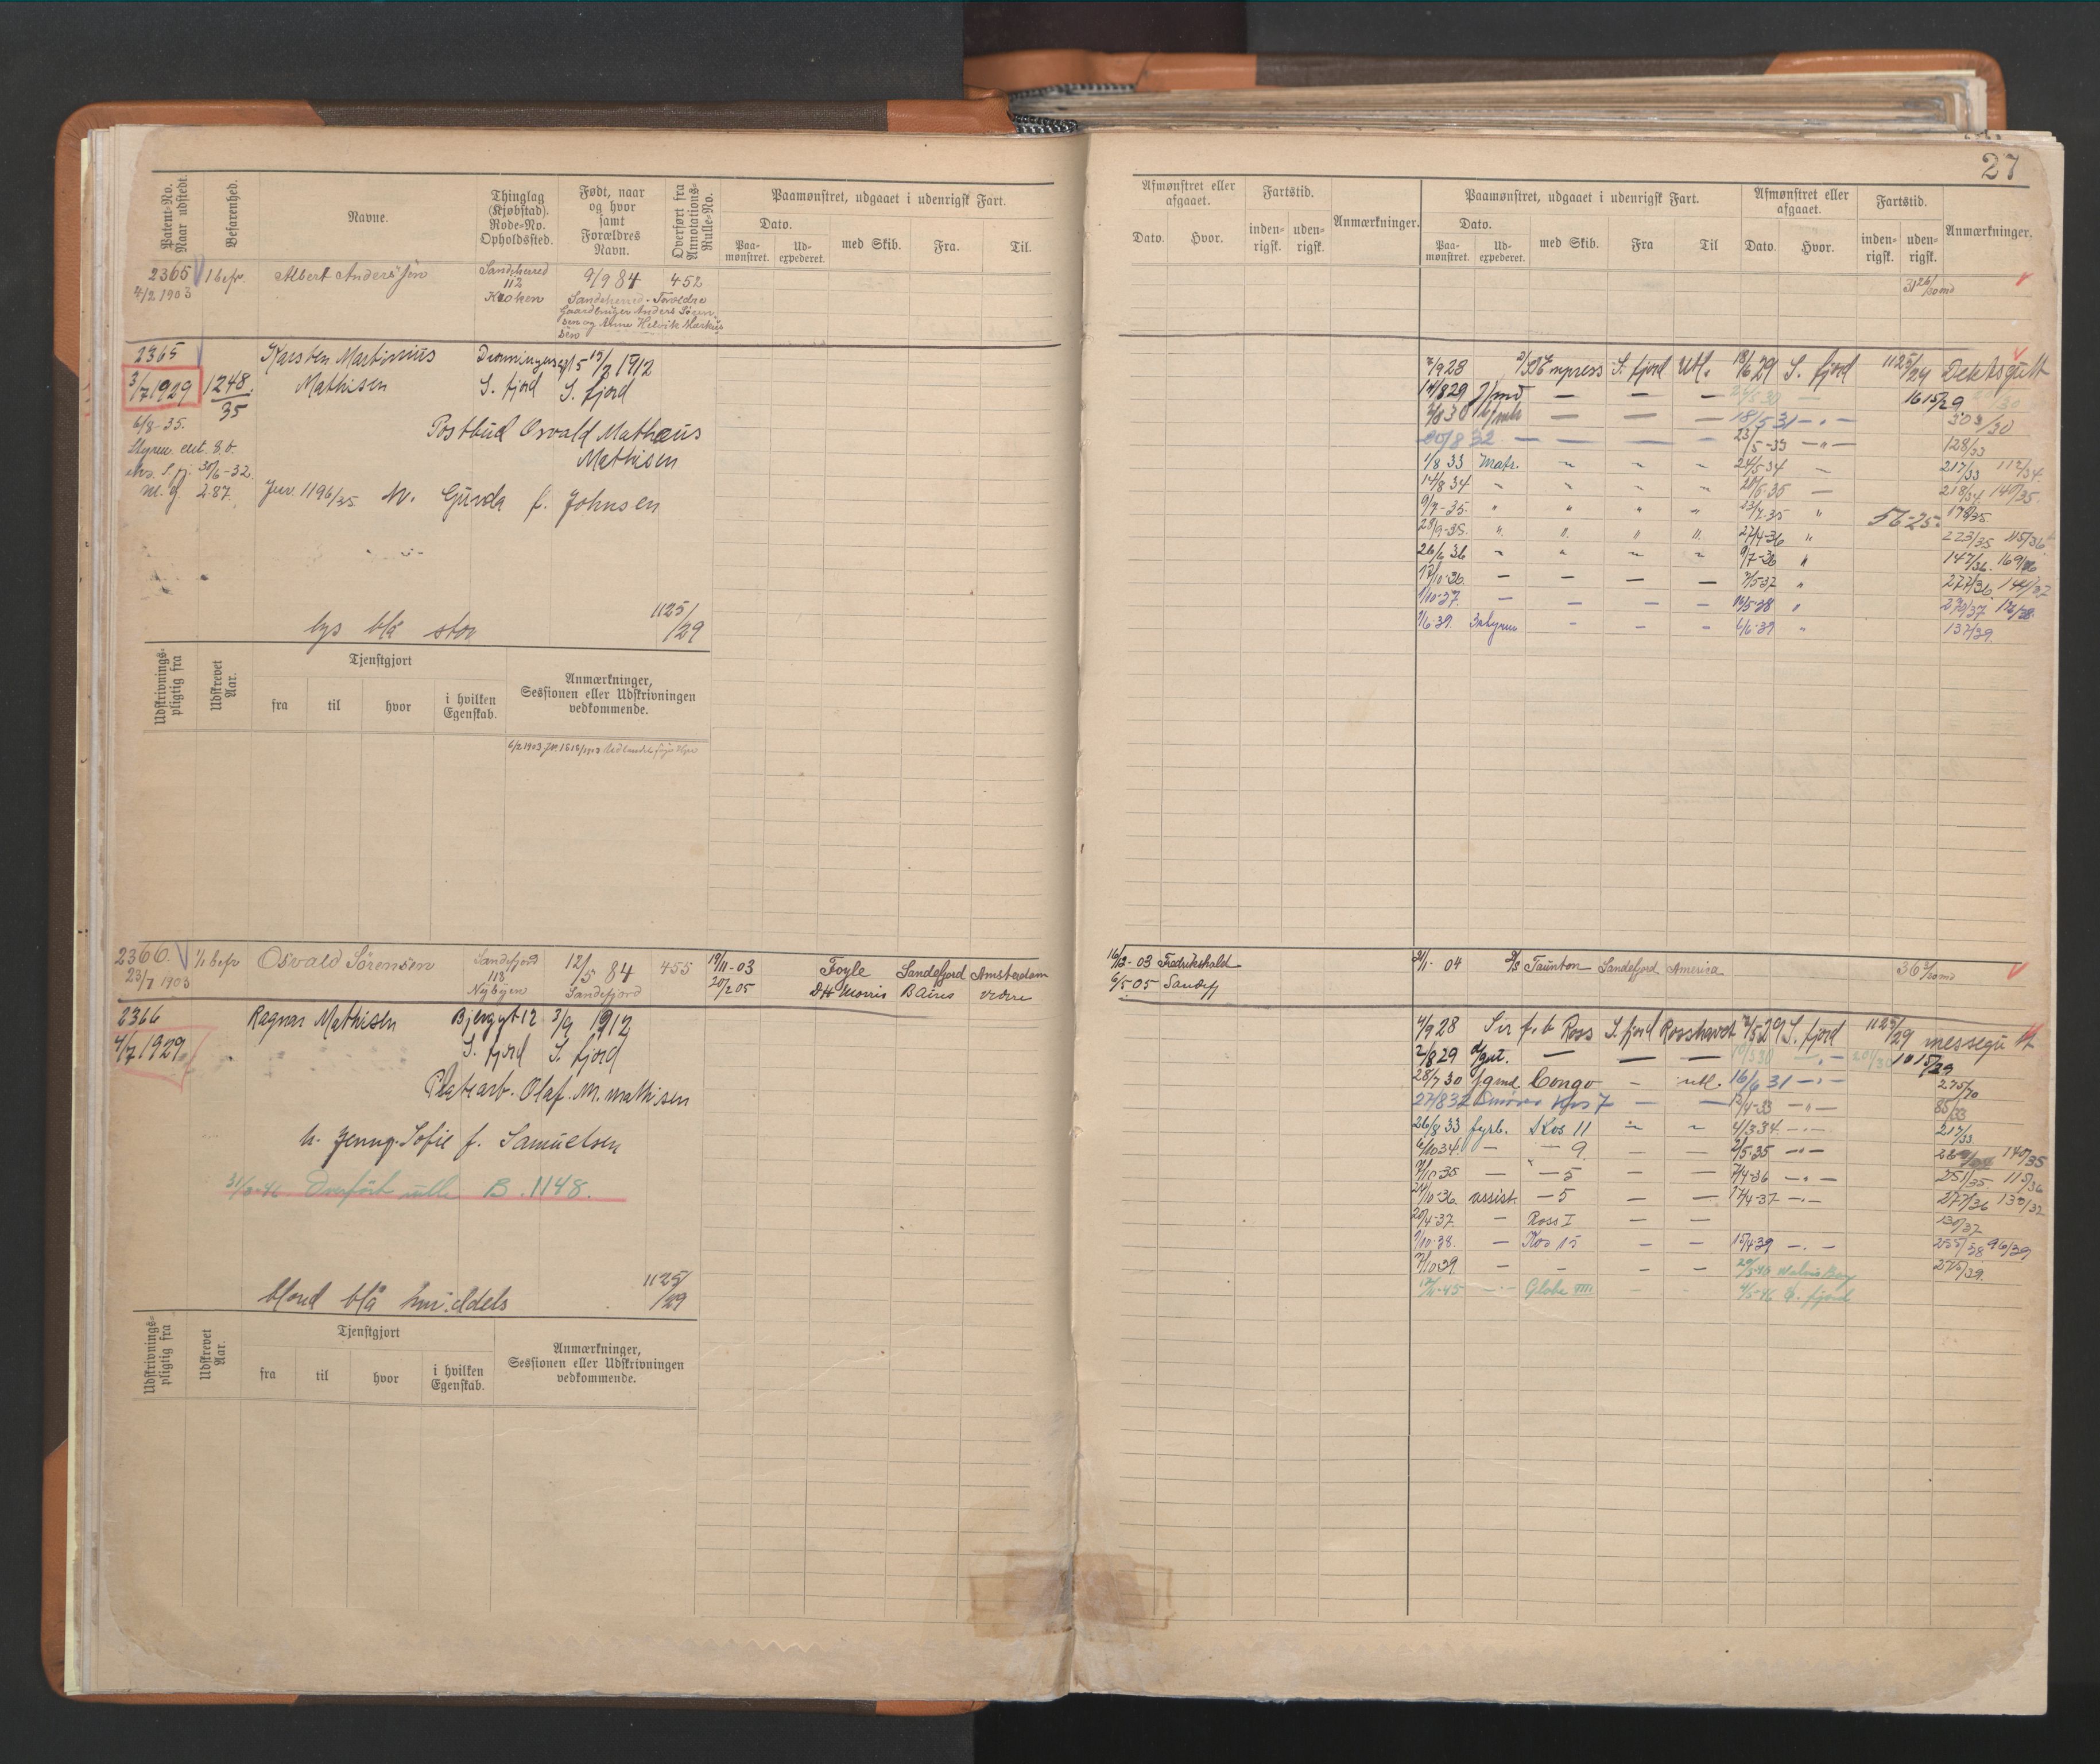 27
Patent-No. Naar udstedt.
Befarenhed.
Navne.
Thinglag (Kjøbstad). Rode-No. Opholdssted.
Født, naar og hvor samt Forældres Navn.
Overført fra Annotations-Rulle-No.
Paamønstret, udgaaet i udenrigsk Fart.
Dato.
Paa-mønstret.
Ud-expederet.
med Skib.
Fra.
Til.
Afmønstret eller afgaaet.
Dato.
Hvor.
Fartstid.
inden-rigsk.
uden-rigsk.
Anmærkninger.
Paamønstret, udgaaet i udenrigsk Fart.
Dato.
Paa-mønstret.
Ud-expederet.
med Skib.
Fra
Til
Afmønstret eller afgaaet.
Dato.
Hvor.
Fartstid.
inden-rigsk.
uden-rigsk.
Anmærkninger.
2365
4/2 1903
1 befr.
Albert Anderssøn
Sandeherred
112
Kroken
9/9 84
452
Sandeherred. Forældre
Gaardbruger Anders Søren-
sen og Anne Helvik Markus
2365
3/7 1929
1248/35
6/8-35.
Karsten Martinius
Mathisen
15/2 1912
S. fjord
S. fjord
Postbud Osvald Mathæus
Mathisen
M. Gunda f. Johnsen
lys blå stor
1125/29
7/9 28 Empress S. fjord Utl. 18/6 29 S. fjord 1125/29 Dekksgutt
14/8 29 J/md — — — 1615/29
18/5 31 303/30
20/8 32 — — — — 23/5-33 — 128/33
1/8 33 Matr. 24/5-34 217/33 112/34.
14/8 34 218/34 140/35.
9/7-35. 23/7-35 178/35. 56-25-
28/9-35. 27/4-36 223/35 115/36
26/6 36 9/7-36 147/36. 169/36
17/10-36. — — — — 7/5-37 277/36. 144/37
1/10-37. — — — — 16/5-38
1/6 39. 6/6-39 137/39.
Udskrivnings-pligtig fra
Udskrevet Aar.
Tjenstgjort
fra
til
hvor
i hvilken Egenskab.
Anmærkninger, Sessionen eller Udskrivningen vedkommende.
2366.
23/7 1903
1/1 befr
Osvald Sørensen
Sandefjord
113
Nybyen
12/5 84
Sandefjord
455
19/11-03 Foyle Sandefjord Amsterdam
20/2 05 D H Morris B Aires videre
16/12-03 Fredrikshald
6/5-05 Sandefj
21/1- 04 S/S Taunton Sandefjord America
2366
4/7 1929
Ragnar Mathisen
Bjerggt 12
3/9 1912
S. fjord
S. fjord
Platearb. Olaf. M. Mathisen
M. Jenny Sofie f. Samuelsen
31/3-46 Overført rulle B. 1148.
blond blå middels
1125/29
4/9 28 Sir J. C. Ross S. fjord Rosshavet 2/5 29 S. fjord 1125/29 messegutt
2/8 29 — — — 1015/29
28/7 30 Congo — utl. 16/6 31 275/70
27/8 32 Kos 7 — — 12/4-33 85/33
26/8 33 fyrb. Kos 11 4/3 34 217/33
6/10 34. — — 9. — — 2/5-35 140/35
7/10-35 — — 5 — — 7/4-36 251/35 115/36
24/10-36. assist. — 5 — — 17/4-37 277/36 130/37
20/4-37. — Ross I — — 130/37
1/10-38. — Kos 15 — — 15/4-39 255/38 96/39
7/10 39. — — — — Walvis Bay 275/39.
12/11-45 — Globe III. — 4/5-46 S. fjord
Udskrivnings-pligtig fra
Udskrevet Aar.
Tjenstgjort
fra
til
hvor
i hvilken Egenskab.
Anmærkninger, Sessionen eller Udskrivningen vedkommende.